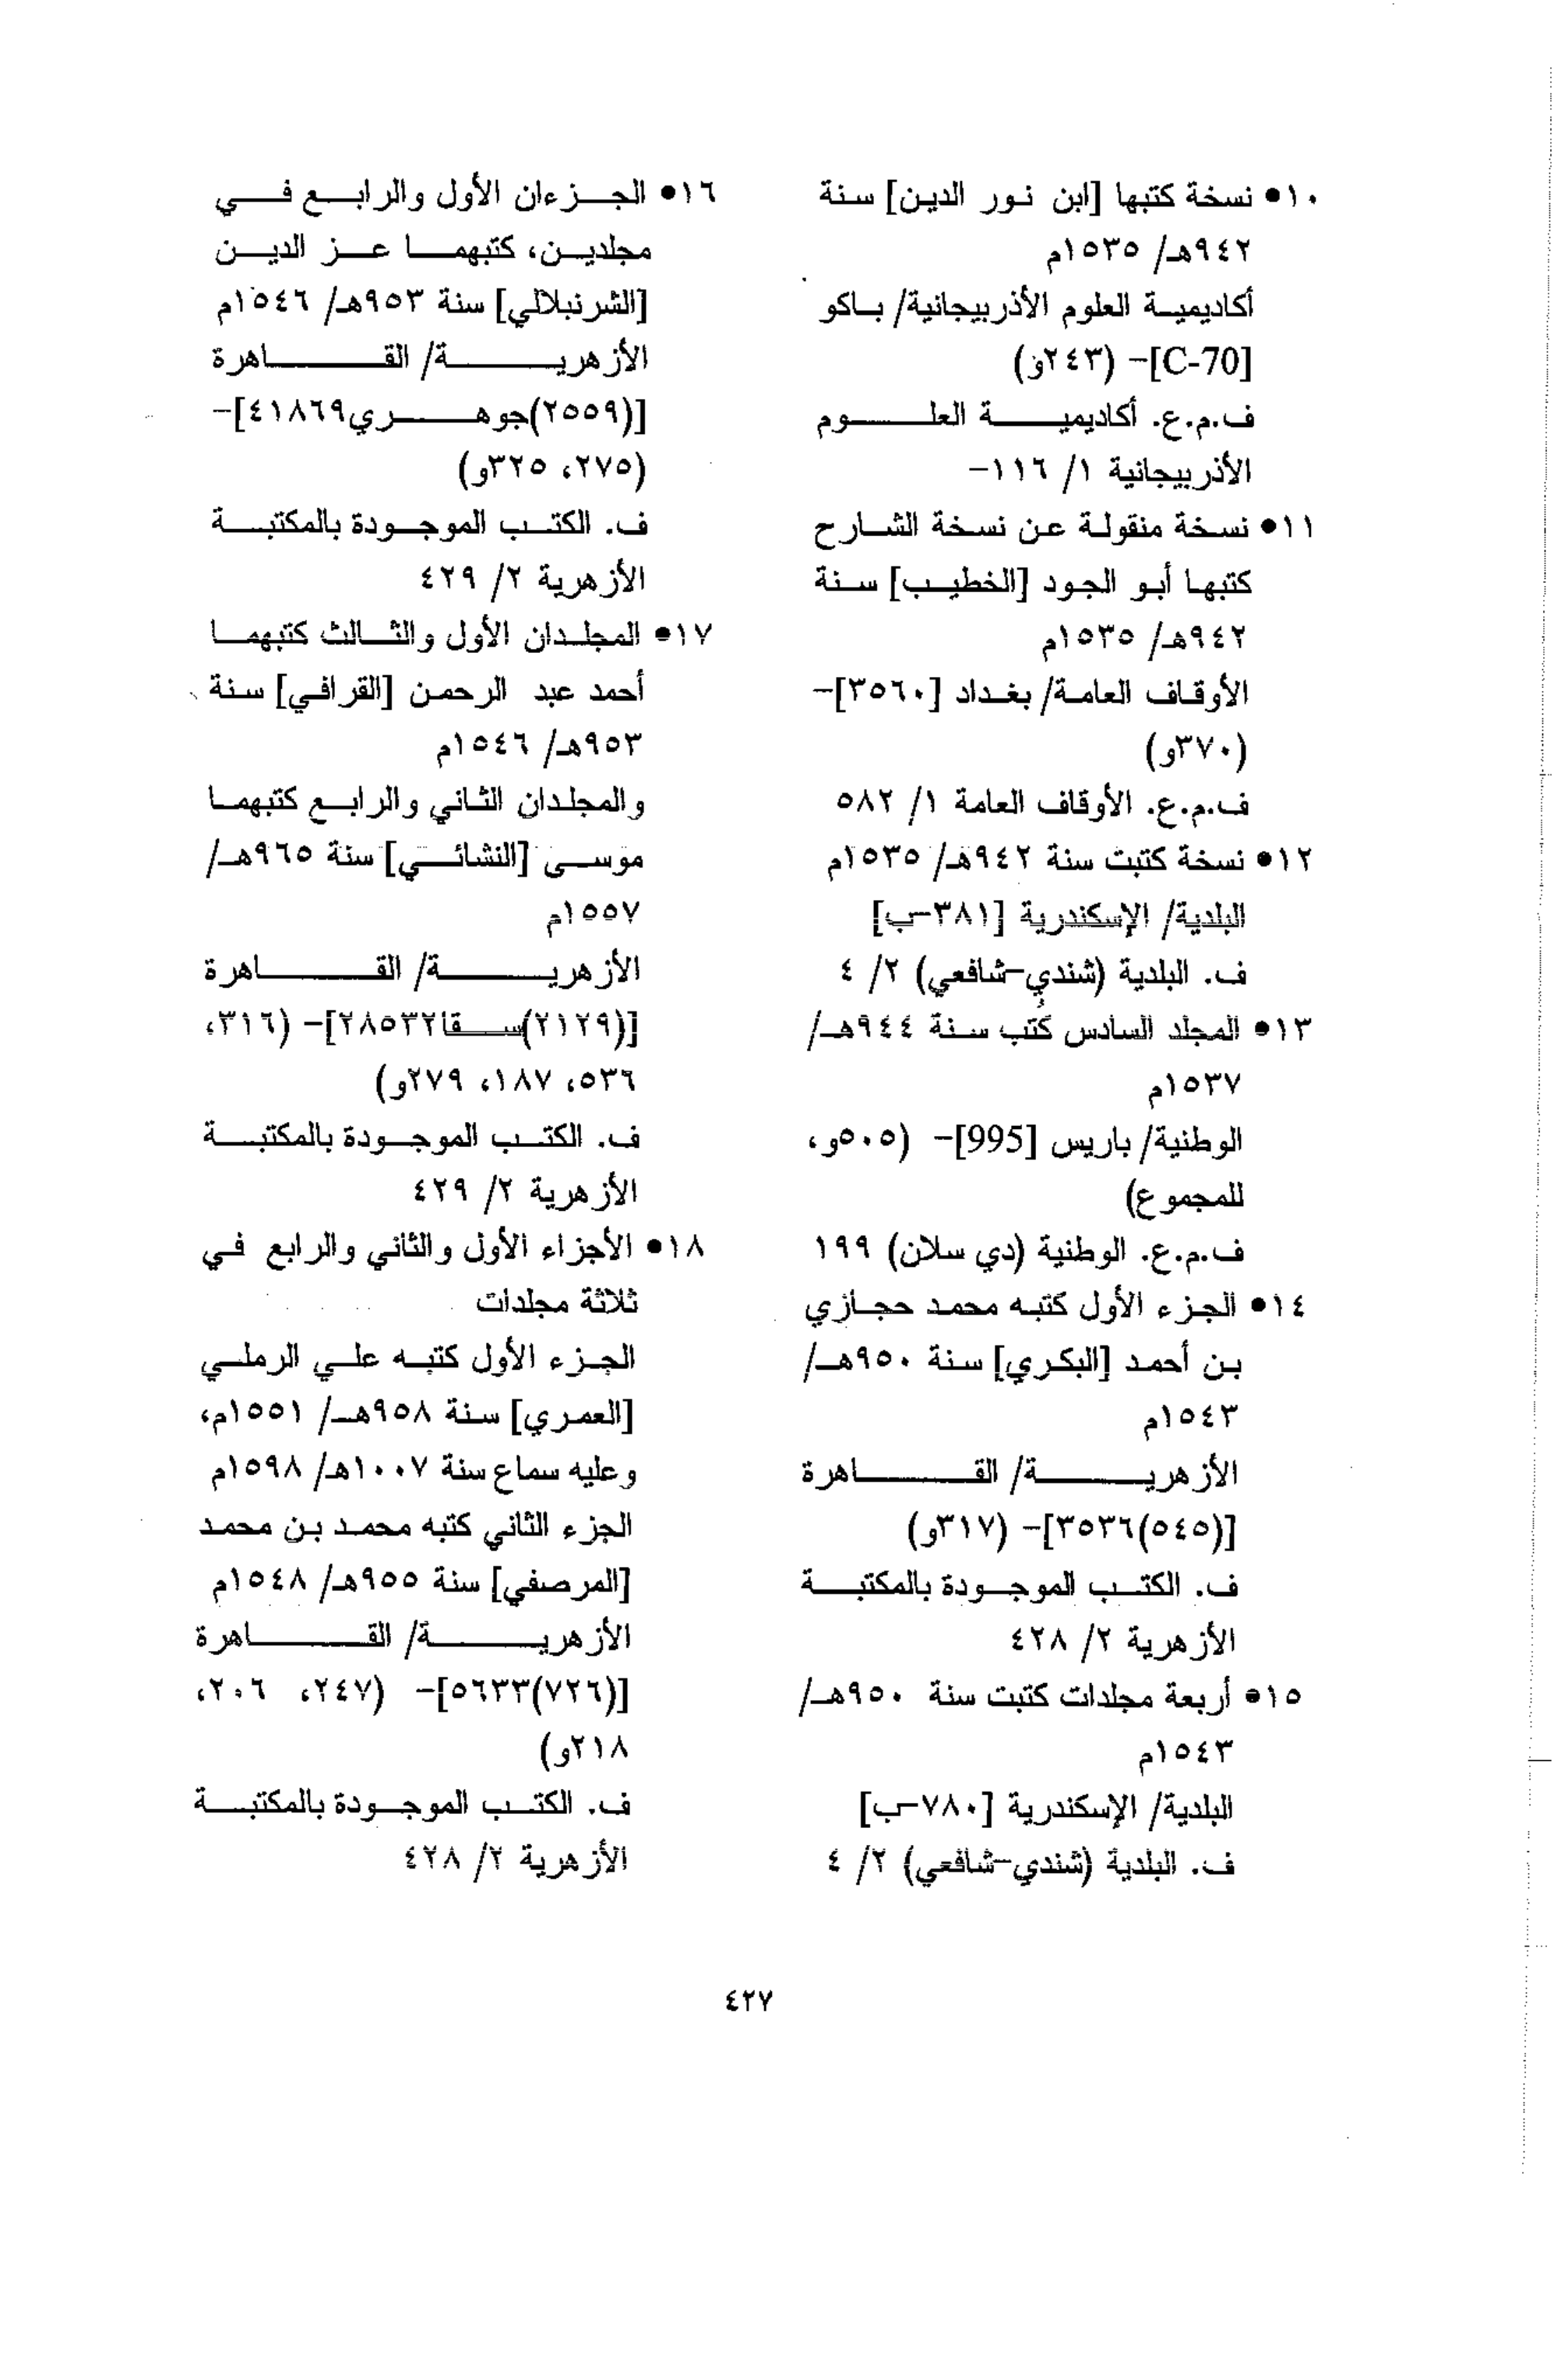 ١٠● نسخة كتبها [ابن نور الدين] سنة
٩٤٢هـ/ ١٥٣٥م
أكاديمية العلوم الأذربيجانية/ باكو
[C-70]- (٢٤٣و)
ف.م.ع. أكاديمية العلوم
الأذربيجانية ١/ ١١٦-
١١● نسخة منقولة عن نسخة الشارح
كتبها أبو الجود [الخطيب] سنة
٩٤٢هـ/ ١٥٣٥م
الأوقاف العامة/ بغداد [٣٥٦٠]-
(٣٧٠و)
ف.م.ع. الأوقاف العامة ١/ ٥٨٢
١٢● نسخة كتبت سنة ٩٤٢هـ/ ١٥٣٥م
البلدية/ الإسكندرية [٣٨١-ب]
ف. البلدية (شندي-شافعي) ٢/ ٤
١٣● المجلد السادس كُتب سنة ٩٤٤هـ/
١٥٣٧م
الوطنية/ باريس [995]- (٥٠٥و،
للمجموع)
ف.م.ع. الوطنية (دي سلان) ١٩٩
١٤● الجزء الأول كتبه محمد حجازي
بن أحمد [البكري] سنة ٩٥٠هـ/
١٥٤٣م
الأزهرية/ القاهرة
[(٥٤٥)٣٥٣٦]- (٣١٧و)
ف. الكتب الموجودة بالمكتبة
الأزهرية ٢/ ٤٢٨
١٥● أربعة مجلدات كتبت سنة ٩٥٠هـ/
١٥٤٣م
البلدية/ الإسكندرية [٧٨٠-ب]
ف. البلدية (شندي-شافعي) ٢/ ٤
١٦● الجزءان الأول والرابع في
مجلدين، كتبهما عز الدين
[الشرنبلالي] سنة ٩٥٣هـ/ ١٥٤٦م
الأزهرية/ القاهرة
[(٢٥٥٩)جوهري٤١٨٦٩]-
(٢٧٥، ٣٢٥و)
ف. الكتب الموجودة بالمكتبة
الأزهرية ٢/ ٤٢٩
١٧● المجلدان الأول والثالث كتبهما
أحمد عبد الرحمن [القرافي] سنة
٩٥٣هـ/ ١٥٤٦م
والمجلدان الثاني والرابع كتبهما
موسى [النشائي] سنة ٩٦٥هـ/
١٥٥٧م
الأزهرية/ القاهرة
[(٢١٢٩)سقا٢٨٥٣٢]- (٣١٦،
٥٣٦، ١٨٧، ٢٧٩و)
ف. الكتب الموجودة بالمكتبة
الأزهرية ٢/ ٤٢٩
١٨● الأجزاء الأول والثاني والرابع في
ثلاثة مجلدات
الجزء الأول كتبه علي الرملي
[العمري] سنة ٩٥٨هـ/ ١٥٥١م،
وعليه سماع سنة ١٠٠٧هـ/ ١٥٩٨م
الجزء الثاني كتبه محمد بن محمد
[المرصفي] سنة ٩٥٥هـ/ ١٥٤٨م
الأزهرية/ القاهرة
[(٧٢٦)٥٦٣٣]- (٢٤٧، ٢٠٦،
٢١٨و)
ف. الكتب الموجودة بالمكتبة
الأزهرية ٢/ ٤٢٨
٤٢٧